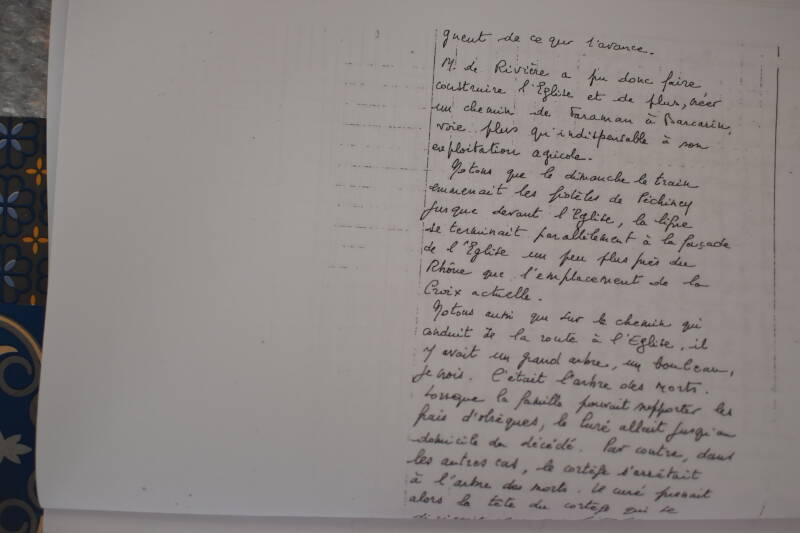 gnent de ce qui l'avance.
M. de Rivière a pu donc faire
construire l'Eglise et de plus, créer
un chemin de Faraman à Barcarin,
voie plus qu'indispensable à son
exploitation agricole.
Notons que le dimanche le train
emmenait les fidèles de Péchiney
jusque devant l'Eglise, la ligne
se terminait parallèlement à la façade
de l'Eglise un peu plus près du
Rhône que l'emplacement de la
Croix actuelle.
Notons aussi que sur le chemin qui
conduit de la route à l'Eglise, il
y avait un grand arbre, un bouleau,
je crois. C'était l'arbre des morts.
Lorsque la famille pouvait supporter les
frais d'obsèques, le curé allait jusqu'au
domicile du décédé. Par contre, dans
les autres cas, le cortège s'arrêtait
à l'arbre des morts. Le curé prenait
alors la tête du cortège qui se